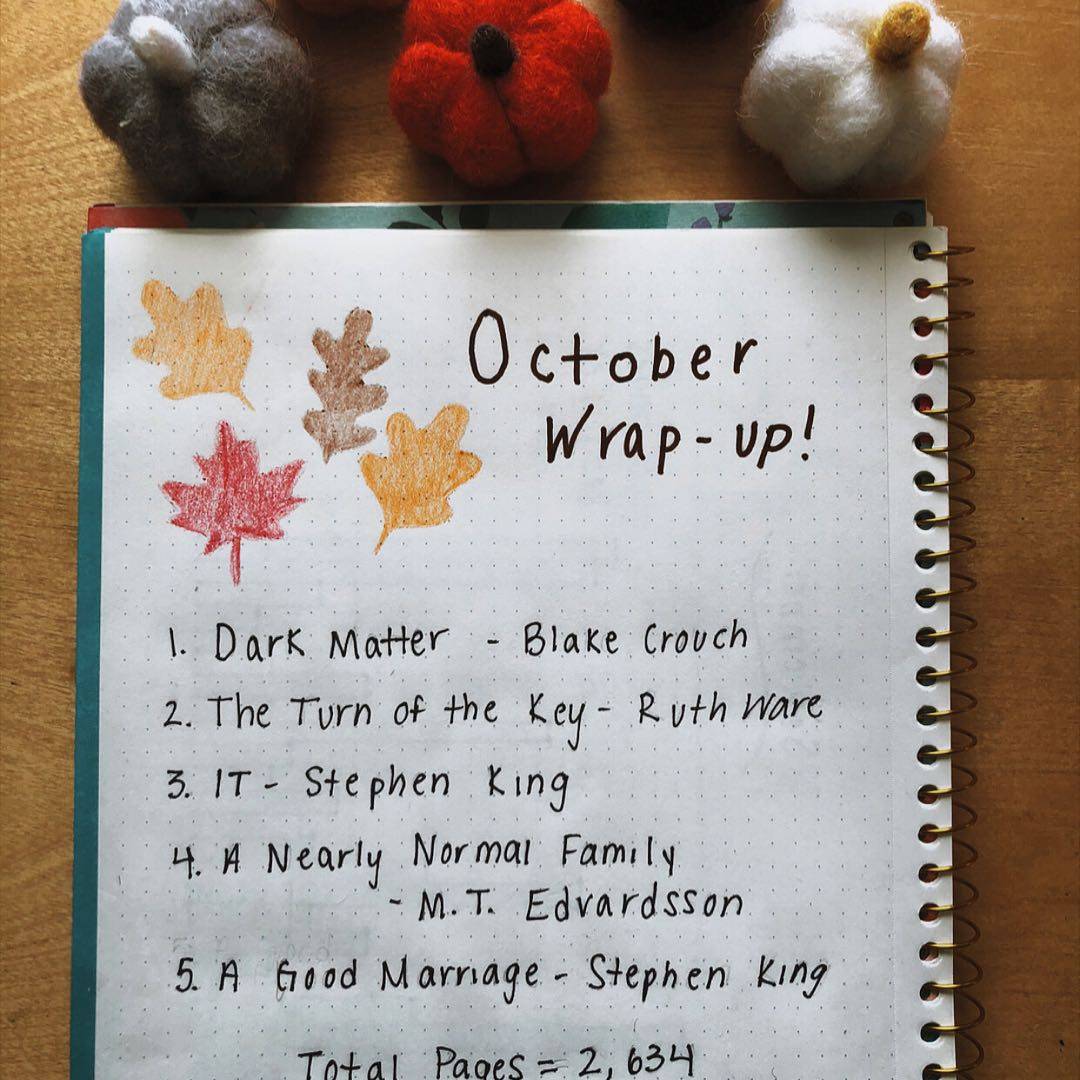 October
Wrap-up!
1. Dark Matter - Blake Crouch
2. The Turn of the Key - Ruth Ware
3. IT - Stephen King
4. A Nearly Normal Family
- M.T. Edvardsson
5. A Good Marriage - Stephen King
Total Pages = 2,634